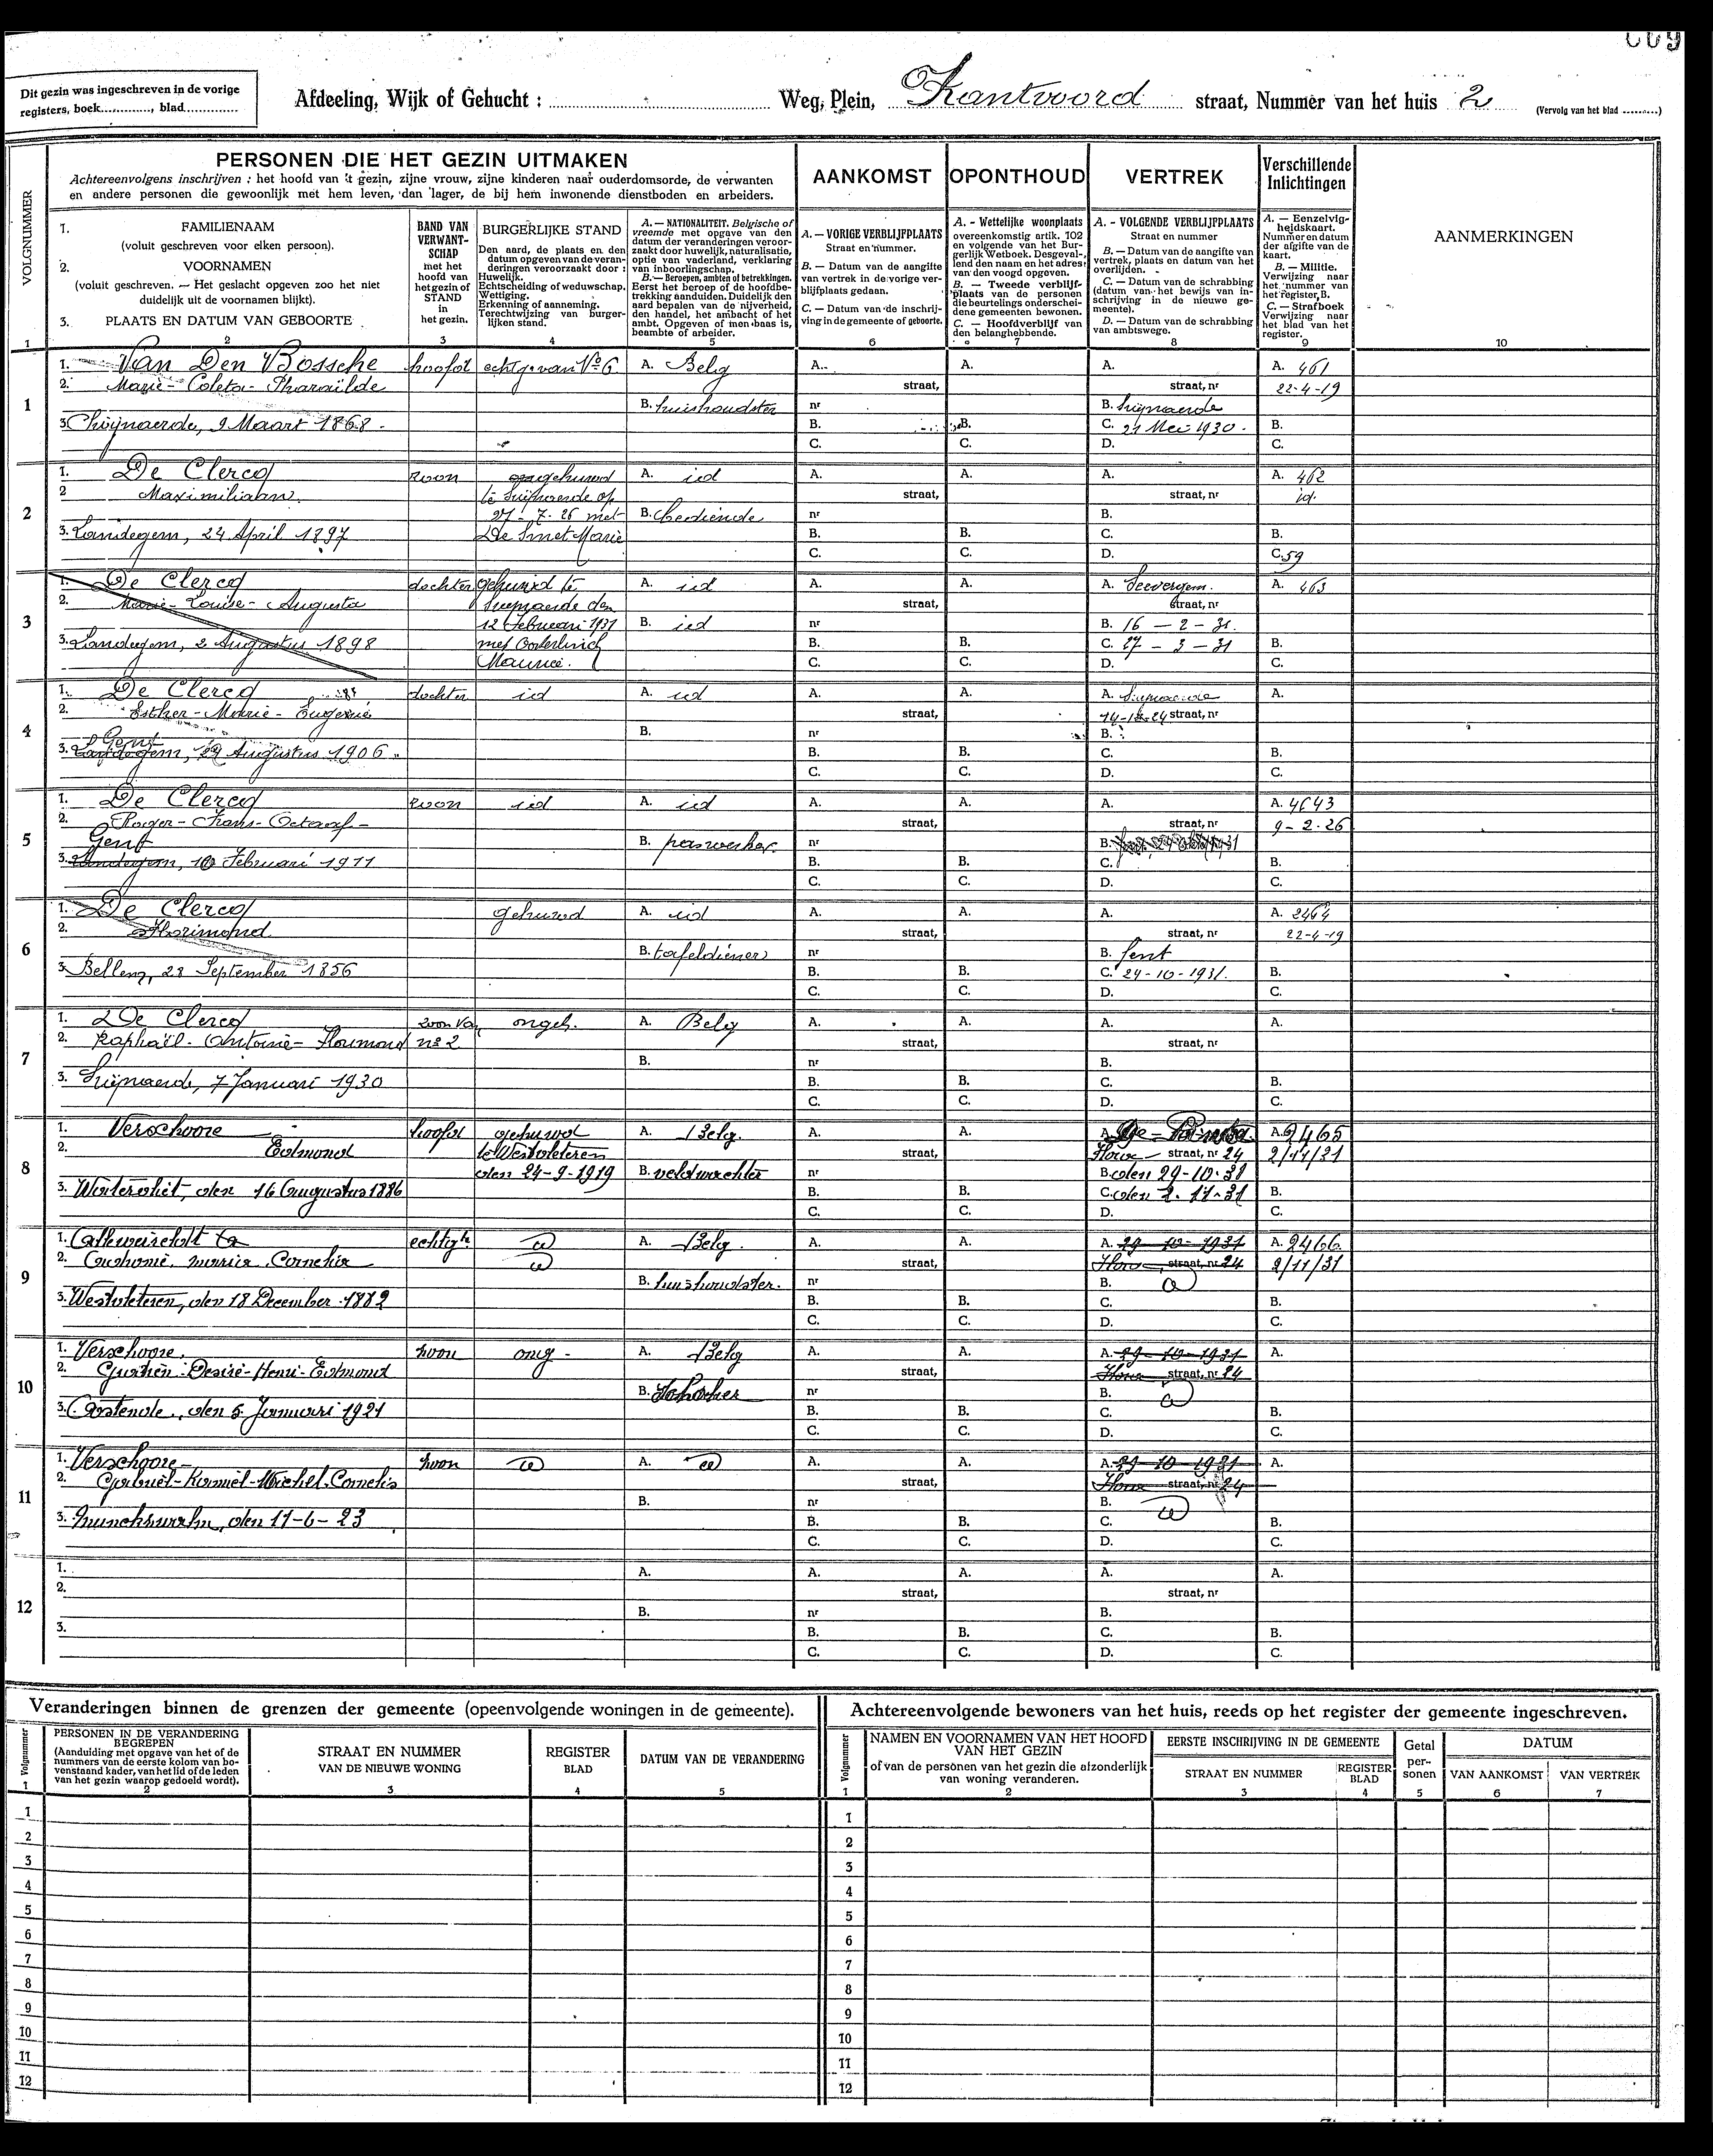 669
Dit gezin was ingeschreven in de vorige
registers, boek............, blad..............
Afdeeling, Wijk of Gehucht : Weg, Plein, Kantvoord straat, Nummer van het huis 2 (Vervolg van het blad .........)
VOLGNUMMER
PERSONEN DIE HET GEZIN UITMAKEN
Achtereenvolgens inschrijven : het hoofd van 't gezin, zijne vrouw, zijne kinderen naar ouderdomsorde, de verwanten
en andere personen die gewoonlijk met hem leven, dan lager, de bij hem inwonende dienstboden en arbeiders.
AANKOMST
OPONTHOUD
VERTREK
Verschillende
Inlichtingen
1. FAMILIENAAM
(voluit geschreven voor elken persoon).
2. VOORNAMEN
(voluit geschreven. — Het geslacht opgeven zoo het niet
duidelijk uit de voornamen blijkt).
3. PLAATS EN DATUM VAN GEBOORTE
BAND VAN
VERWANT-
SCHAP
met het
hoofd van
het gezin of
STAND
in
het gezin.
BURGERLIJKE STAND
Den aard, de plaats en den
datum opgeven van de veran-
deringen veroorzaakt door :
Huwelijk.
Echtscheiding of weduwschap.
Wettiging.
Erkenning of aanneming.
Terechtwijzing van burger-
lijken stand.
A. — NATIONALITEIT. Belgische of
vreemde met opgave van den
datum der veranderingen veroor-
zaakt door huwelijk, naturalisatie,
optie van vaderland, verklaring
van inboorlingschap.
B. — Beroepen, ambten of betrekkingen.
Eerst het beroep of de hoofdbe-
trekking aanduiden. Duidelijk den
aard bepalen van de nijverheid,
den handel, het ambacht of het
ambt. Opgeven of men baas is,
beambte of arbeider.
A. — VORIGE VERBLIJFPLAATS
Straat en nummer.
B. — Datum van de aangifte
van vertrek in de vorige ver-
blijfplaats gedaan.
C. — Datum van de inschrij-
ving in de gemeente of geboorte.
A. - Wettelijke woonplaats
overeenkomstig artik. 102
en volgende van het Bur-
gerlijk Wetboek. Desgeval-
lend den naam en het adres
van den voogd opgeven.
B. — Tweede verblijf-
plaats van de personen
die beurtelings onderschei-
dene gemeenten bewonen.
C. — Hoofdverblijf van
den belanghebbende.
A. - VOLGENDE VERBLIJFPLAATS
Straat en nummer
B. — Datum van de aangifte van
vertrek, plaats en datum van het
overlijden.
C. — Datum van de schrabbing
(datum van het bewijs van in-
schrijving in de nieuwe ge-
meente).
D. — Datum van de schrabbing
van ambtswege.
A. — Eenzelvig-
heidskaart.
Nummer en datum
der afgifte van de
kaart.
B. — Militie.
Verwijzing naar
het nummer van
het register B.
C. — Strafboek
Verwijzing naar
het blad van het
register.
AANMERKINGEN
1 2 3 4 5 6 7 8 9 10
1
1. Van Den Bossche hoofd echtg. van No 6 A. Belg A. A. A. A. 461
2. Marie - Coleta - Pharaïlde straat, straat, nr 22-4-19
B. huishoudster nr B. Swijnaerde
3. Swijnaerde, 9 Maart 1868. B. B. C. 21 Mei 1930. B.
C. C. D. C.
2
1. De Clercq zoon ongehuwd A. id A. A. A. A. 462
2 Maximiliaan. te Swijnaerde op straat, straat, nr id.
27-7-26 met B. bediende nr B.
3. Landegem, 24 April 1897 De Smet Marie B. B. C. B.
C. C. D. C. 59
3
1. De Clercq dochter gehuwd te A. id A. A. A. Seevergem. A. 463
2. Marie-Louise-Augusta Swijnaerde den straat, straat, nr
12 Februari 1931 B. id nr B. 16 - 2 - 31.
3. Landegem, 2 Augustus 1898 met Oosterlinck B. B. C. 27 - 3 - 31 B.
Maurice. C. C. D. C.
4
1. De Clercq dochter id A. id A. A. A. Swijnaerde A.
2. Esther-Marie-Eugenie straat, straat, nr
Gent B. nr B.
3. Landegem, Augustus 1906. B. B. C. B.
C. C. D. C.
5
1. De Clercq zoon id A. id A. A. A. A. 4643
2. Roger-Frans-Octaaf- straat, straat, nr 9-2-26
Gent B. paswerker nr B.
3. Landegem, 10 Februari 1911 B. B. C. B.
C. C. D. C.
6
1. De Clercq gehuwd A. id A. A. A. A. 2464
2. Florimond straat, straat, nr 22-4-19
B. tafeldiener nr B. Gent
3. Bellem, 28 September 1856 B. B. C. 24-10-1931. B.
C. C. D. C.
7
1. De Clercq zoon van ongeh. A. Belg A. A. A. A.
2. Raphaël-Antoine-Florimond no 2 straat, straat, nr
B. nr B.
3. Swijnaerde, 7 Januari 1930 B. B. C. B.
C. C. D. C.
8
1. Verschoore hoofd gehuwd A. Belg. A. A. A. A. 2465
2. Edmond te Westvleteren straat, straat, nr 24 2/11/31
den 24-9-1919 B. veldwachter nr B. den 29-10-31
3. Watervliet, den 16 Augustus 1886 B. B. C. den 2-11-31 B.
C. C. D. C.
9
1. echtgte A. Belg. A. A. A. 29-10-1931 A. 2466
2. Maria Cornelia straat, straat, nr 24 2/11/31
B. huishoudster. nr B.
3. Westvleteren, den 18 December 1882 B. B. C. B.
C. C. D. C.
10
1. Verschoore. zoon ong - A. Belg A. A. A. 29-10-1931 A.
2. Desiré-Henri-Edmond straat, straat, nr 24
B. nr B.
3. Oostende, den 5 Januari 1921 B. B. C. B.
C. C. D. C.
11
1. Verschoore- zoon A. A. A. A. 29-10-1931 A.
2. Michel-Cornelis straat, straat, nr 24
B. nr B.
3. den 11-6-23 B. B. C. B.
C. C. D. C.
12
1. A. A. A. A. A.
2. straat, straat, nr
B. nr B.
3. B. B. C. B.
C. C. D. C.
Veranderingen binnen de grenzen der gemeente (opeenvolgende woningen in de gemeente).
Volgnummer
PERSONEN IN DE VERANDERING
BEGREPEN
(Aanduiding met opgave van het of de
nummers van de eerste kolom van bo-
venstaand kader, van het lid of de leden
van het gezin waarop gedoeld wordt).
STRAAT EN NUMMER
VAN DE NIEUWE WONING
REGISTER
BLAD
DATUM VAN DE VERANDERING
1 2 3 4 5
1
2
3
4
5
6
7
8
9
10
11
12
Achtereenvolgende bewoners van het huis, reeds op het register der gemeente ingeschreven.
Volgnummer
NAMEN EN VOORNAMEN VAN HET HOOFD
VAN HET GEZIN
of van de personen van het gezin die afzonderlijk
van woning veranderen.
EERSTE INSCHRIJVING IN DE GEMEENTE
STRAAT EN NUMMER
REGISTER
BLAD
Getal
per-
sonen
DATUM
VAN AANKOMST
VAN VERTREK
1 2 3 4 5 6 7
1
2
3
4
5
6
7
8
9
10
11
12